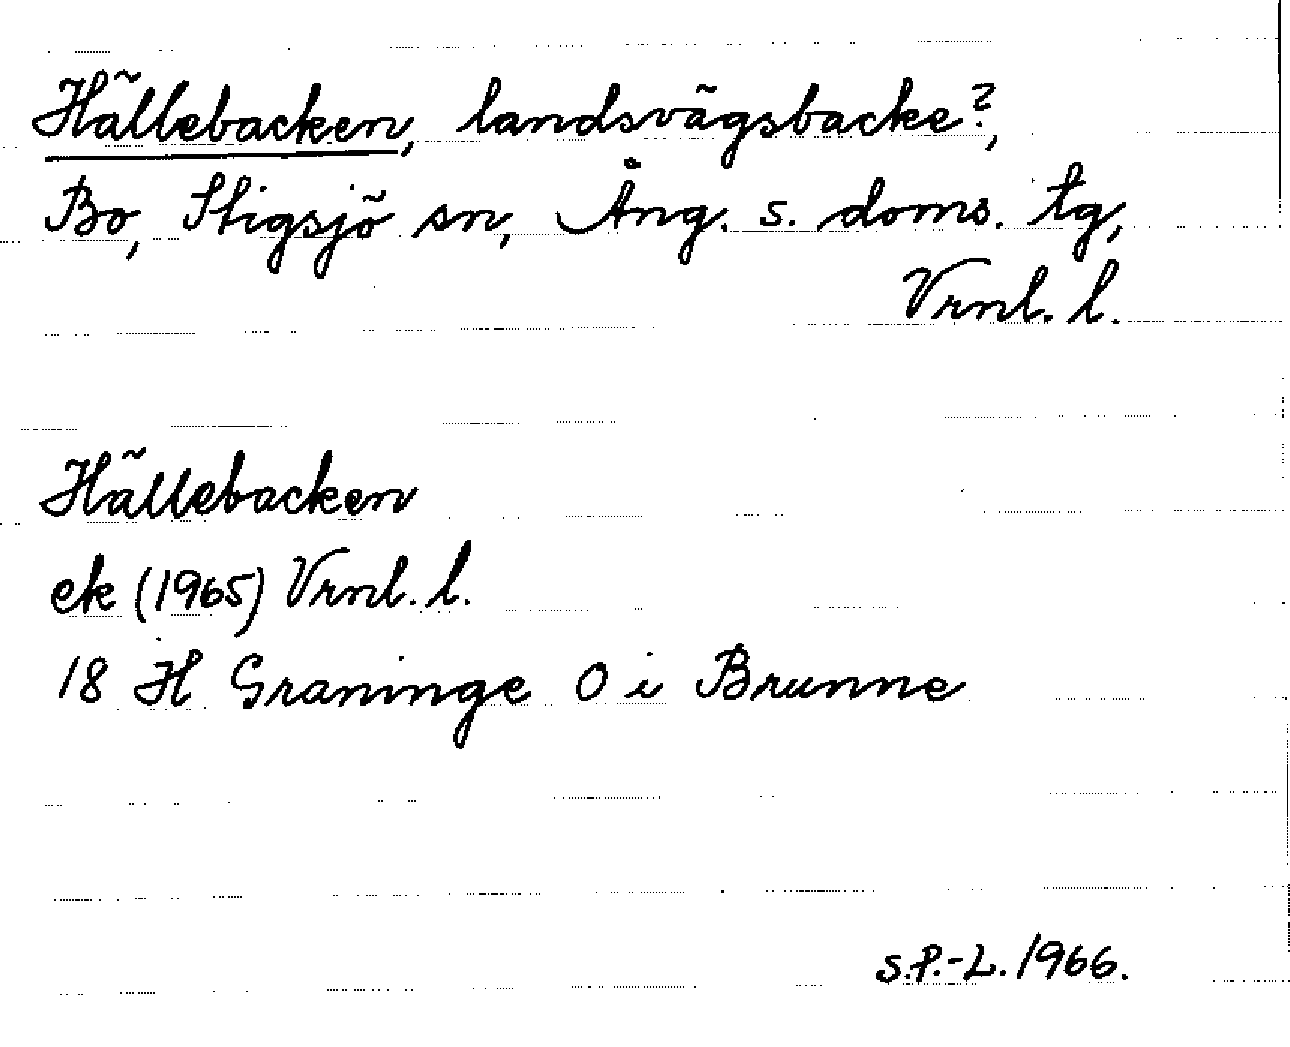 Hällebacken, landsvägsbacke?,
Bo, Stigsjö sn, Ång. s. doms. tg,
Vrnl. l.
Hällebacken
ek (1965) Vrnl. l.
18 H Graninge O i Brunne
S.P.-L. 1966.